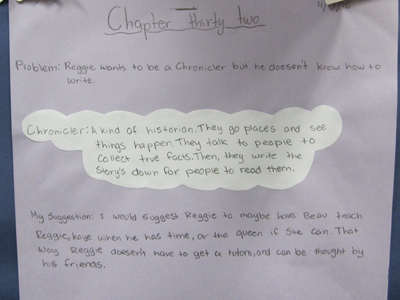 Chapter thirty two
Problem: Reggie wants to be a Chronicler but he doesen't know how to
write.
Chronicler: A kind of historian. They go places and see
things happen. They talk to people to
collect true facts. Then, they write the
story's down for people to read them.
My Suggestion: I would suggest Reggie to maybe have Beau teach
Reggie, Kaye when he has time, or the queen if she can. That
way Reggie doesen't have to get a tutore, and can be thought by
his friends.